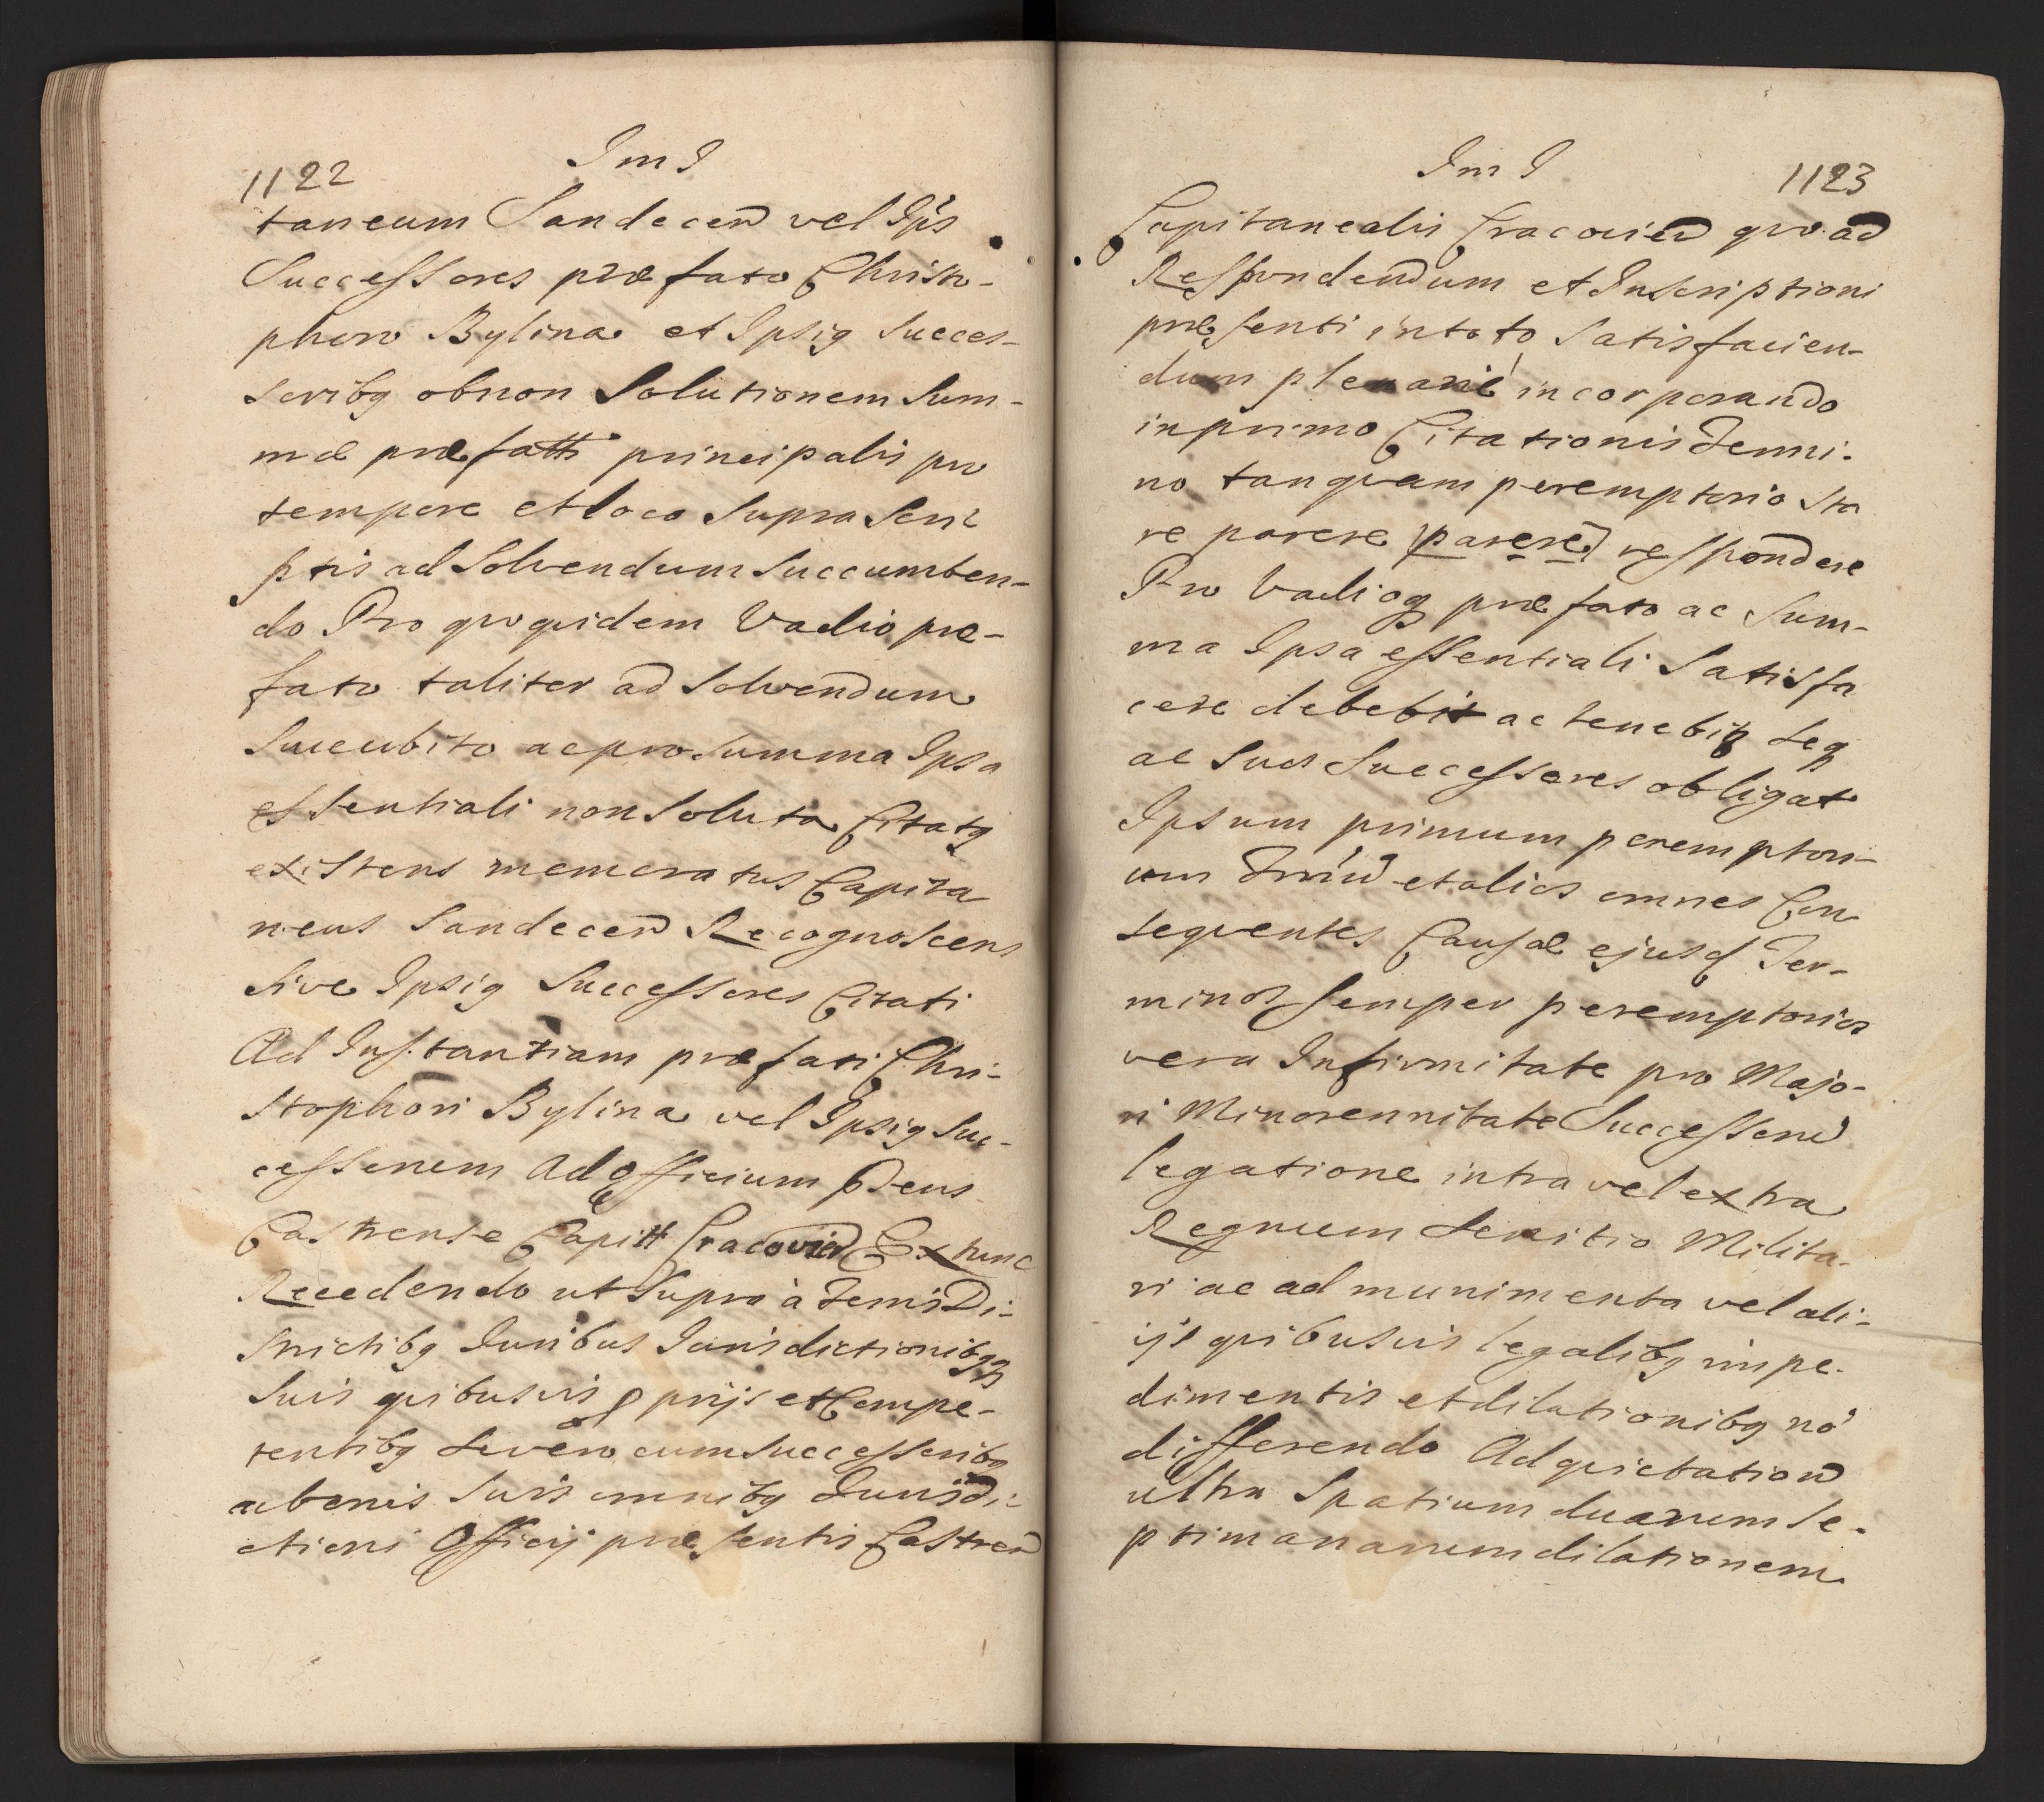 1122
Im J
taneum Sandecen vel Ips
Successores præfato Christo-
phoro Bylina et Ipsig Succes-
soribg obnon Solutionem Sum-
mæ præfatti principalis pro
tempore et loco Supra Scri
ptis ad Solvendum Succumben-
do Pro quoquidem Vadio præ-
fato taliter ad Solvendum
Succubito ac pro Summa Ipsa
essentiali non Soluta Citatg
existens memoratus Capita
neus Sandecen Recognoscens
Sive Ipsig Successores Citati
Ad Instantiam præfati Chri-
stophori Bylina vel Ipsig Suc-
cessorum Ad Officium Præns
Castrense Capitt Cracovien Ex tunc
Recedendo ut Supra à Terris Di-
strictibg Iuribus Iurisdictionibgq
Suis quibusvis pprijs et Compe-
tentibg Severo cum Successoribg
ac bonis Suis omnibg Iurisdi-
ctioni Officij præsentis Castren
Im J
1123
Capitanealis Cracovien quo ad
Respondendum et Inscriptioni
præsenti in toto Satisfacien-
dum plenariè incorporando
in primo Citationis Termi-
no tanquam peremptorio Sta
re parere (parere) respondere
Pro Vadioq præfato ac Sum-
ma Ipsa essentiali Satisfa
cere debebit ac tenebitr Seq
ac Suos Successores obligat
Ipsum primum peremptori-
um Trminū et alios omnes Con
sequentes Causæ ejusd Ter-
minos Semper peremptorios
vera Infirmitate pro Majo-
ri Minorennitate Successoru
legatione intra vel extra
Regnum Servitio Milita-
ri ac ad munimenta vel ali-
ijs quibusvis legalibg impe-
dimentis et dilationibg nō
differendo Ad quietation
ultra Spatium duarum Se-
ptimanarum dilationem